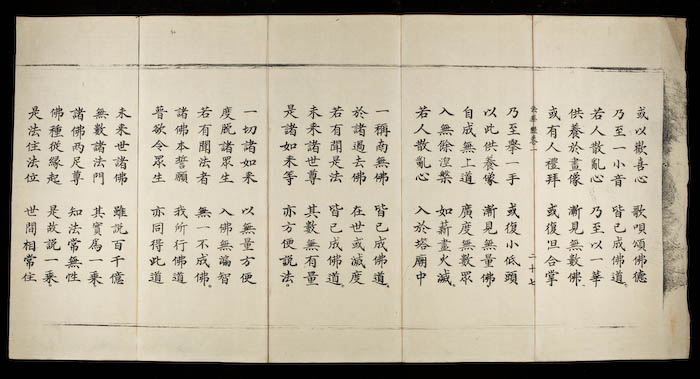 或以歡喜心　歌唄頌佛德
乃至一小音　皆已成佛道
若人散亂心　乃至以一華
供養於畫像　漸見無數佛
或有人禮拜　或復但合掌
法華經卷一　二十七
乃至舉一手　或復小低頭
以此供養像　漸見無量佛
自成無上道　廣度無數眾
入無餘涅槃　如薪盡火滅
若人散亂心　入於塔廟中
一稱南無佛　皆已成佛道
於諸過去佛　在世或滅度
若有聞是法　皆已成佛道
未來諸世尊　其數無有量
是諸如來等　亦方便說法
一切諸如來　以無量方便
度脫諸眾生　入佛無漏智
若有聞法者　無一不成佛
諸佛本誓願　我所行佛道
普欲令眾生　亦同得此道
未來世諸佛　雖說百千億
無數諸法門　其實為一乘
諸佛兩足尊　知法常無性
佛種從緣起　是故說一乘
是法住法位　世間相常住